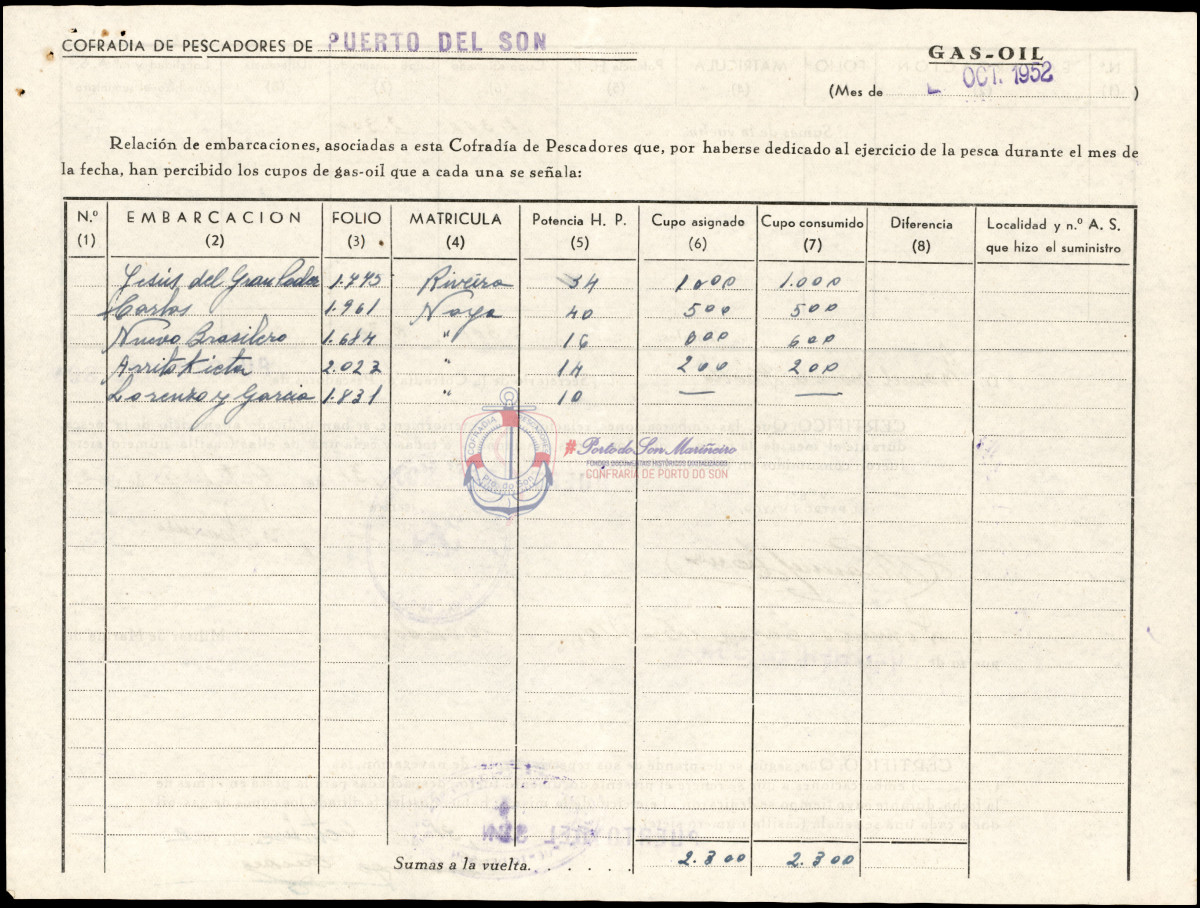 COFRADIA DE PESCADORES DE PUERTO DEL SON
GAS-OIL
(Mes de OCT. 1952)
Relación de embarcaciones, asociadas a esta Cofradía de Pescadores que, por haberse dedicado al ejercicio de la pesca durante el mes de
la fecha, han percibido los cupos de gas-oil que a cada una se señala:
N.º EMBARCACION FOLIO MATRICULA Potencia H. P. Cupo asignado Cupo consumido Diferencia Localidad y n.º A. S.
(1) (2) (3) (4) (5) (6) (7) (8) que hizo el suministro
Jesús del Gran Poder 1.775 Riveira 54 1000 1.000
Carlos 1.961 Noya 40 500 500
Nuevo Brasilero 1.684 " 16 600 600
2.023 " 14 200 200
Lorenzo y Garcia 1.831 " 10 — —
COFRADIA PESCADORES
Pto. do Son
#Porto do Son Mariñeiro
FONDOS DOCUMENTAIS HISTÓRICOS DIXITALIZADOS
CONFRARÍA DE PORTO DO SON
Sumas a la vuelta. . . . . . 2.300 2.300